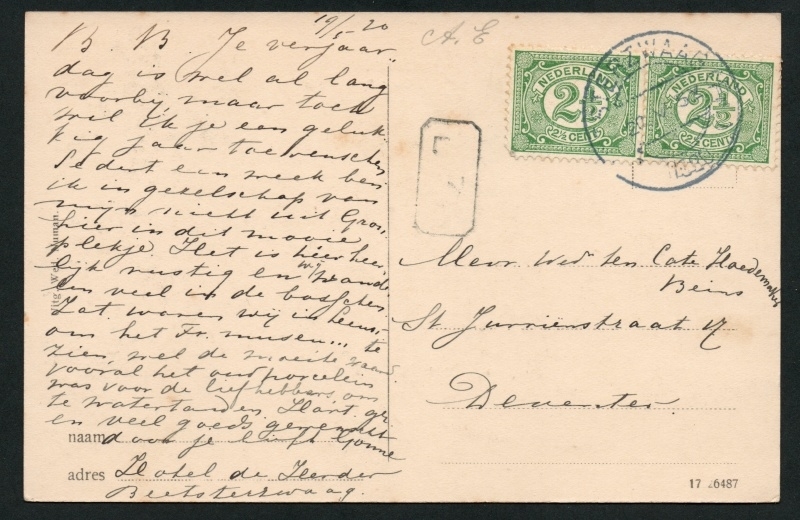 19/5 20
B. B. Je verjaar-
dag is wel al lang
voorbij, maar toch
wil ik je een geluk-
kig jaar toewenschen
Sedert een week ben
ik in gezelschap van
mijn nicht uit Gron.
hier in dit mooie
plekje. Het is hier heer-
lijk rustig en wij wand-
len veel in de bosschen.
Zat. waren wij in Leeuw.
om het Fr. museum te
zien, wel de moeite waard.
vooral het oud porcelein
was voor de liefhebbers om
te watertanden. Hart. gr.
en veel goeds gewenscht
door je
naam
adres Hotel de Herder
Beetsterzwaag.
A. E
NEDERLAND
2½
2½ CENT
NEDERLAND
2½
2½ CENT
L 7
Mevr Wed ten Cate Hoedemaker
Beins
St Jurriënstraat 17
Deventer
17 26487